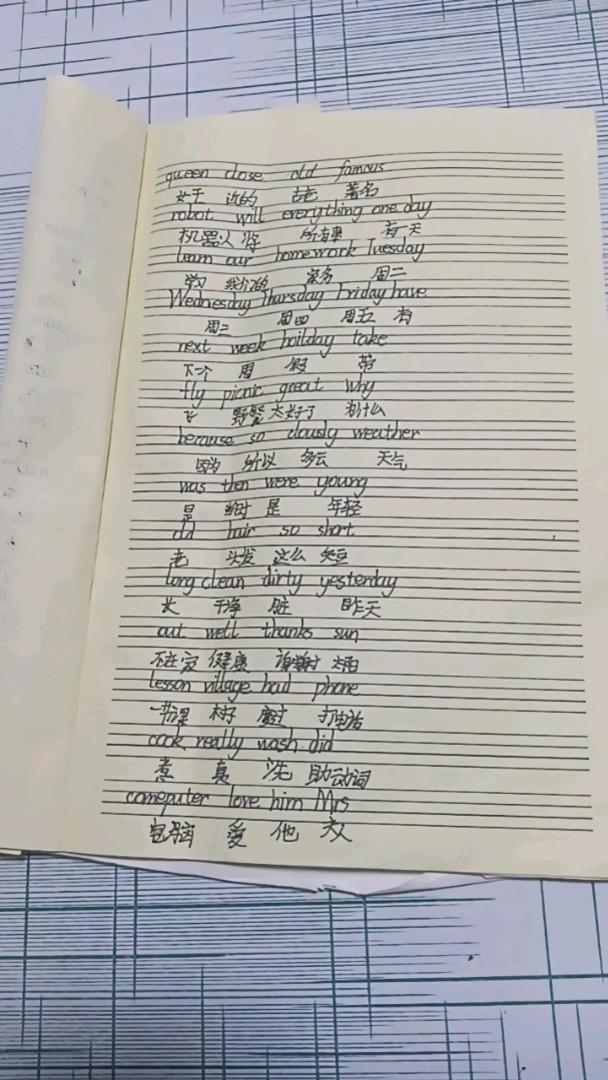 queen close old famous
女王 近的 古老 著名
robot will everything one day
机器人 将 所有事 有一天
learn our homework Tuesday
学习 我们的 家务 周二
Wednesday Thursday Friday have
周三 周四 周五 有
next week hoilday take
下个 周 假 带
fly picnic great why
飞 野餐 太好了 为什么
because so clously weather
因为 所以 多云 天气
was then were young
是 当时 是 年轻
old hair so short
老 头发 这么 短
long clean dirty yesterday
长 干净 脏 昨天
out well thanks sun
不在家 健康 谢谢 太阳
lesson village had phone
一节课 村子 度过 打电话
cook really wash did
煮 真 洗 助动词
comeputer love him Mrs
电脑 爱 他 夫人